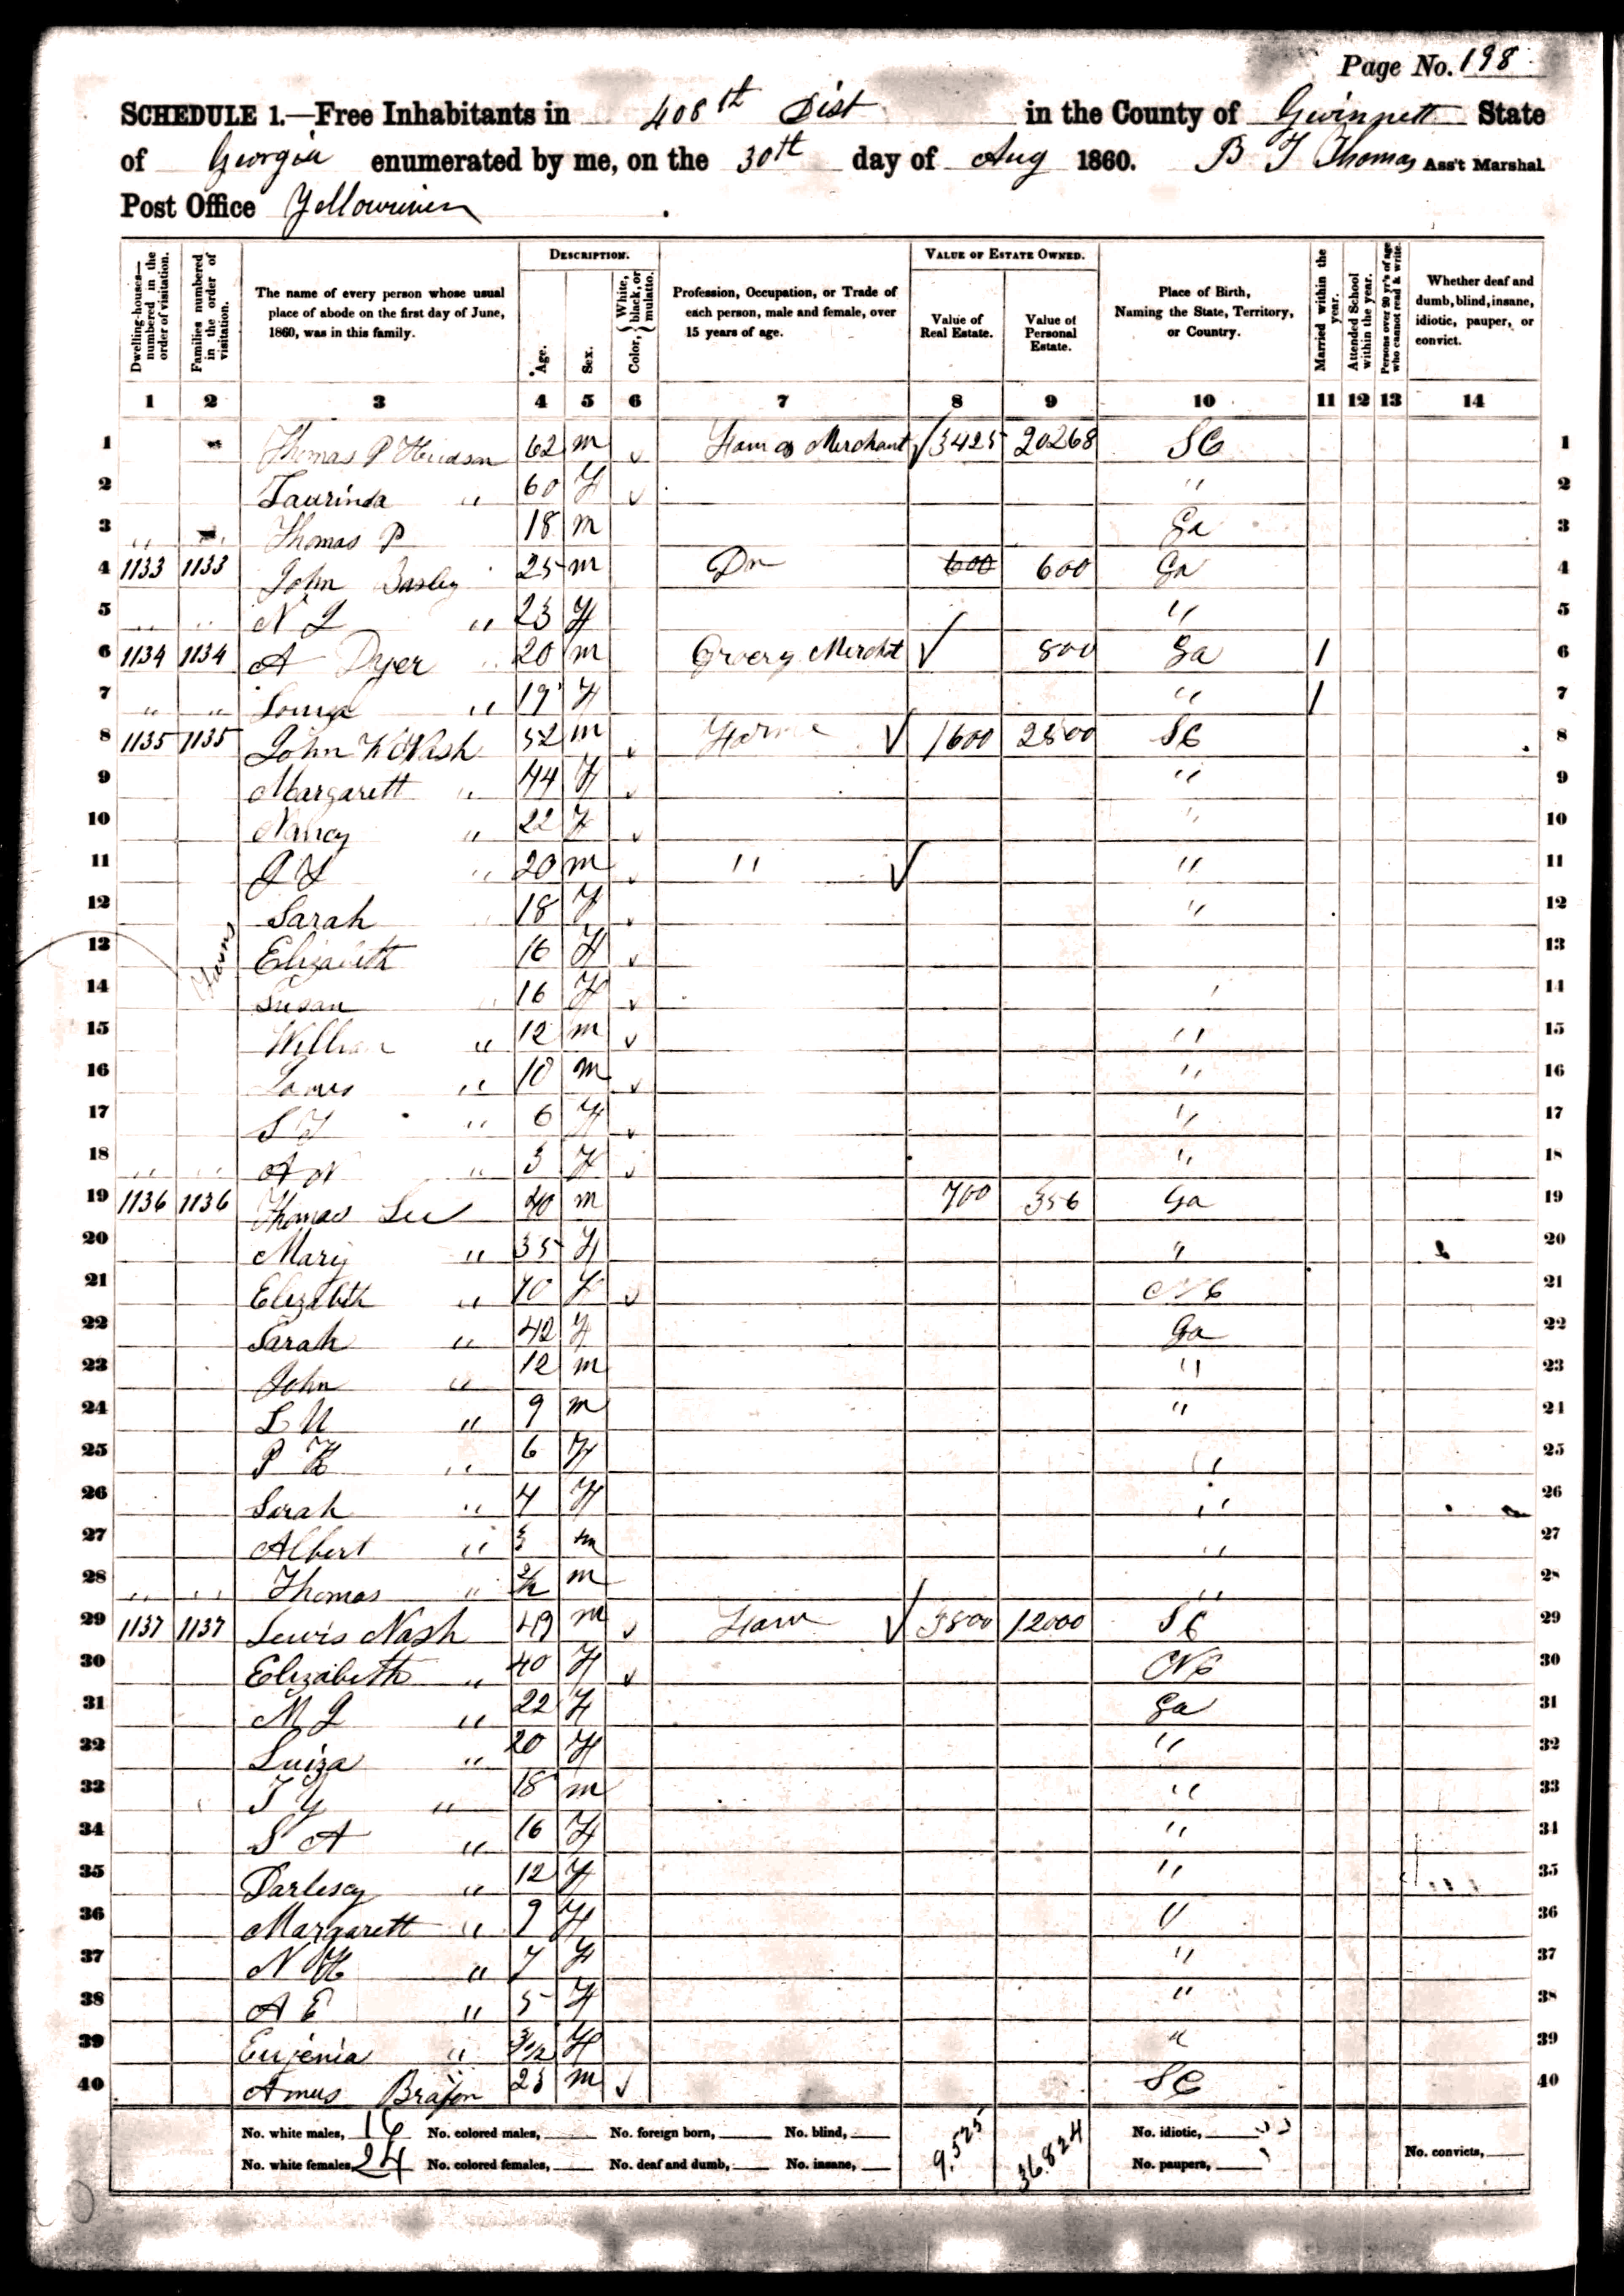 Page No. 198
SCHEDULE 1.—Free Inhabitants in 408th Dist in the County of Gwinnett State
of Georgia enumerated by me, on the 30th day of Aug 1860. B T Thomas Ass't Marshal
Post Office Yellowriver
Dwelling-houses—numbered in the order of visitation. Families numbered in the order of visitation. The name of every person whose usual place of abode on the first day of June, 1860, was in this family. DESCRIPTION. Age. Sex. Color, { White, black, or mulatto. Profession, Occupation, or Trade of each person, male and female, over 15 years of age. VALUE OF ESTATE OWNED. Value of Real Estate. Value of Personal Estate. Place of Birth, Naming the State, Territory, or Country. Married within the year. Attended School within the year. Persons over 20 y'rs of age who cannot read & write. Whether deaf and dumb, blind, insane, idiotic, pauper, or convict.
1 2 3 4 5 6 7 8 9 10 11 12 13 14
1 Thomas P Hudson 62 m Merchant 3425 20268 SC 1
2 Laurinda " 60 F " 2
3 " " Thomas P 18 m Ga 3
4 1133 1133 John 25 m Dr 600 600 Ga 4
5 " " N L " 23 F " 5
6 1134 1134 A Dyer 20 m Grocery Mercht 800 Ga / 6
7 " " " 19 F " / 7
8 1135 1135 John W Nash 52 m Farmer 1600 2500 SC 8
9 Margarett " 44 F " 9
10 Nancy " 22 F " 10
11 " 20 m " " 11
12 Sarah " 18 F " 12
13 Elizabeth 16 F 13
14 Susan " 16 F " 14
15 William " 12 m " 15
16 James " 10 m " 16
17 " 6 F " 17
18 " " A N " 3 F " 18
19 1136 1136 Thomas Lee 40 m 700 356 Ga 19
20 Mary " 35 F " 20
21 Elizabeth " 70 F NC 21
22 Sarah " 42 F Ga 22
23 John " 12 m " 23
24 " 9 m " 24
25 P " 6 F " 25
26 Sarah " 4 F " 26
27 Albert " 3 m " 27
28 " " Thomas " m " 28
29 1137 1137 Lewis Nash 49 m Farm 3800 12000 SC 29
30 Elizabeth " 40 F NC 30
31 M J " 22 F Ga 31
32 Luiza " 20 F " 32
33 T Y " 18 m " 33
34 S A " 16 F " 34
35 " 12 F " 35
36 Margarett " 9 F " 36
37 N H " 7 F " 37
38 A E " 5 F " 38
39 Eugenia " 3/12 F " 39
40 Amus 23 m SC 40
No. white males, 16 No. colored males, No. foreign born, No. blind, 9,525 36,824 No. idiotic,
No. white females, 24 No. colored females, No. deaf and dumb, No. insane, No. paupers, No. convicts,